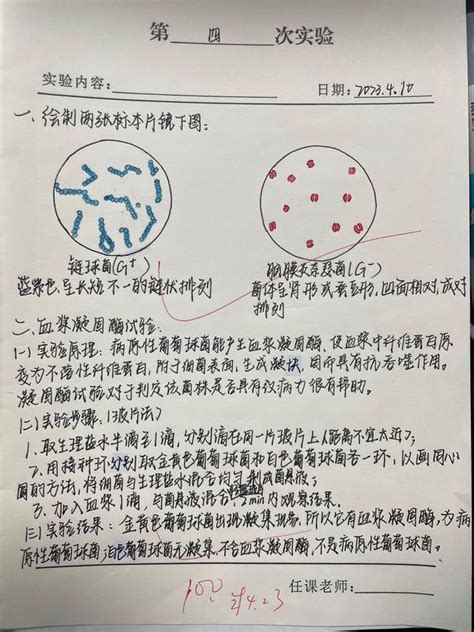 第 四 次实验
实验内容： 日期：2023.4.20
一、绘制两张标本片镜下图：
链球菌(G+) 脑膜炎奈瑟菌(G-)
蓝紫色,呈长短不一的链状排列 菌体呈肾形或蚕豆形,凹面相对,成对
排列
二、血浆凝固酶试验：
(一)实验原理：病原性葡萄球菌能产生血浆凝固酶,使血浆中纤维蛋白原
变为不溶性纤维蛋白,附于细菌表面,生成凝块,因而具有抗吞噬作用。
凝固酶试验对于判定该菌株是否具有致病力很有帮助。
(二)实验步骤：(玻片法)
1.取生理盐水半滴至1滴,分别滴在同一片玻片上(距离不宜太近);
2.用接种环分别取金黄色葡萄球菌和白色葡萄球菌各一环,以画同心
圆的方法,将细菌与生理盐水混合均匀制成菌悬液;
3.加入血浆1滴,与菌悬液混合, 2min内观察结果。
(三)实验结果：金黄色葡萄球菌出现凝集现象,所以它有血浆凝固酶,为病
原性葡萄球菌;白色葡萄球菌无凝集,不含血浆凝固酶,不是病原性葡萄球菌。
100 任课老师：
4.23